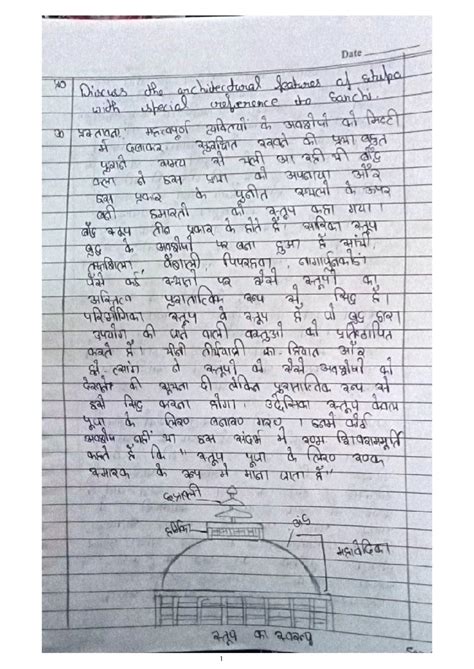 Date
Discuss the architectural features of stupa
with special reference to Sanchi.
महत्वपूर्ण व्यक्तियों के अवशेषों को मिट्टी
में दबाकर सुरक्षित रखने की प्रथा बहुत
पुराने समय से चली आ रही थी बौद्ध
कला ने इस प्रथा को अपनाया और
इस प्रकार के पुनीत स्थलों के ऊपर
बनी इमारतों को स्तूप कहा गया।
बौद्ध स्तूप तीन प्रकार के होते हैं। स्तूप
बुद्ध के अवशेषों पर बना हुआ है सांची,
तक्षशिला, वैशाली, पिपरहवा, नागार्जुनकोंडा
जैसे कई स्थानों पर ऐसे स्तूपों का
अस्तित्व पुरातात्विक रूप से सिद्ध है।
स्तूप वे स्तूप हैं जो बुद्ध द्वारा
उपयोग की जाने वाली वस्तुओं को
करते हैं। चीनी तीर्थयात्री और
ने स्तूपों में ऐसे अवशेषों को
देखने की सूचना दी लेकिन पुरातात्विक रूप से
इसे सिद्ध करना होगा। स्तूप केवल
पूजा के लिए बनाए गए। इनमें कोई
अवशेष नहीं था इस संदर्भ में
कहते हैं कि "स्तूप पूजा के लिए एक
स्मारक के रूप में माना जाता है"
हर्मिका
अंड
महावेदिका
स्तूप का स्वरूप
1